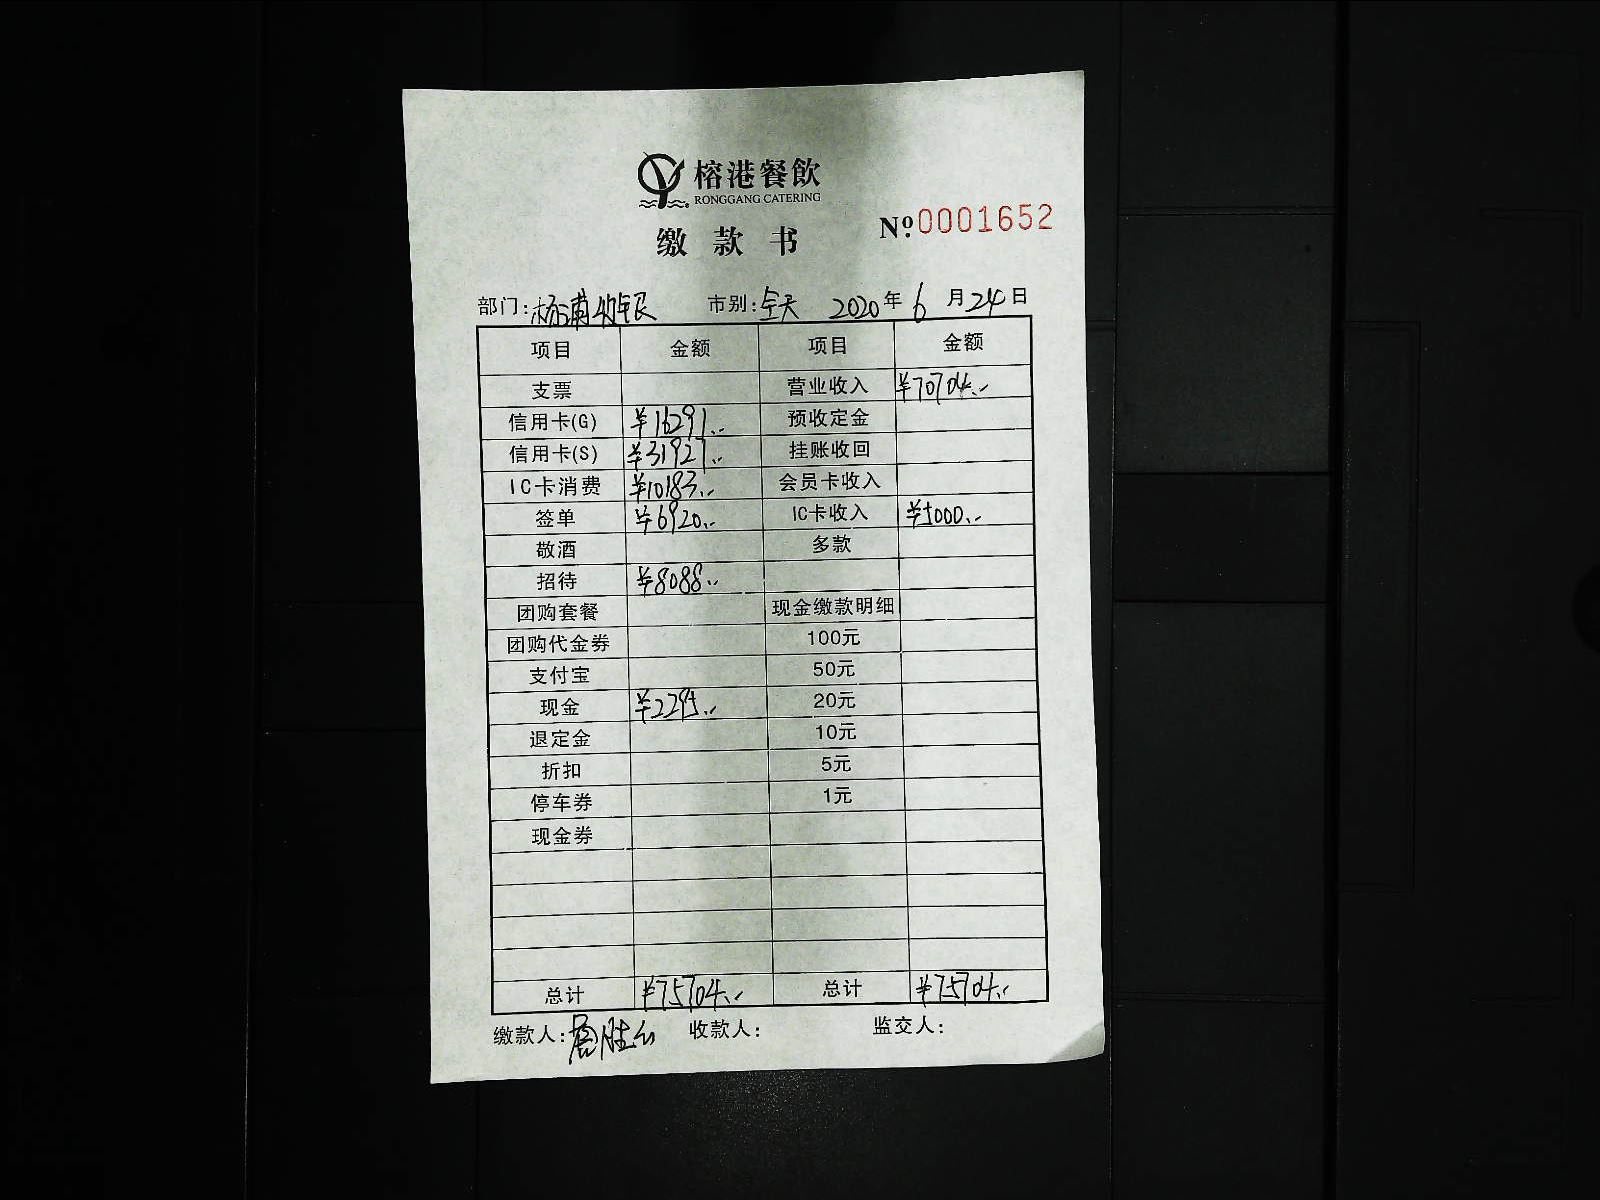 榕港餐飲
RONGGANG CATERING
缴款书 №0001652
部门:杨浦收银 市别:全天 2020年6月24日
项目 金额 项目 金额
支票 营业收入 ¥70704.-
信用卡(G) ¥16291.- 预收定金
信用卡(S) ¥31927.- 挂账收回
IC卡消费 ¥10183.- 会员卡收入
签单 ¥6920.- IC卡收入 ¥5000.-
敬酒 多款
招待 ¥8088.-
团购套餐 现金缴款明细
团购代金券 100元
支付宝 50元
现金 ¥2295.- 20元
退定金 10元
折扣 5元
停车券 1元
现金券
总计 ¥75704.- 总计 ¥75704.-
缴款人: 收款人: 监交人: